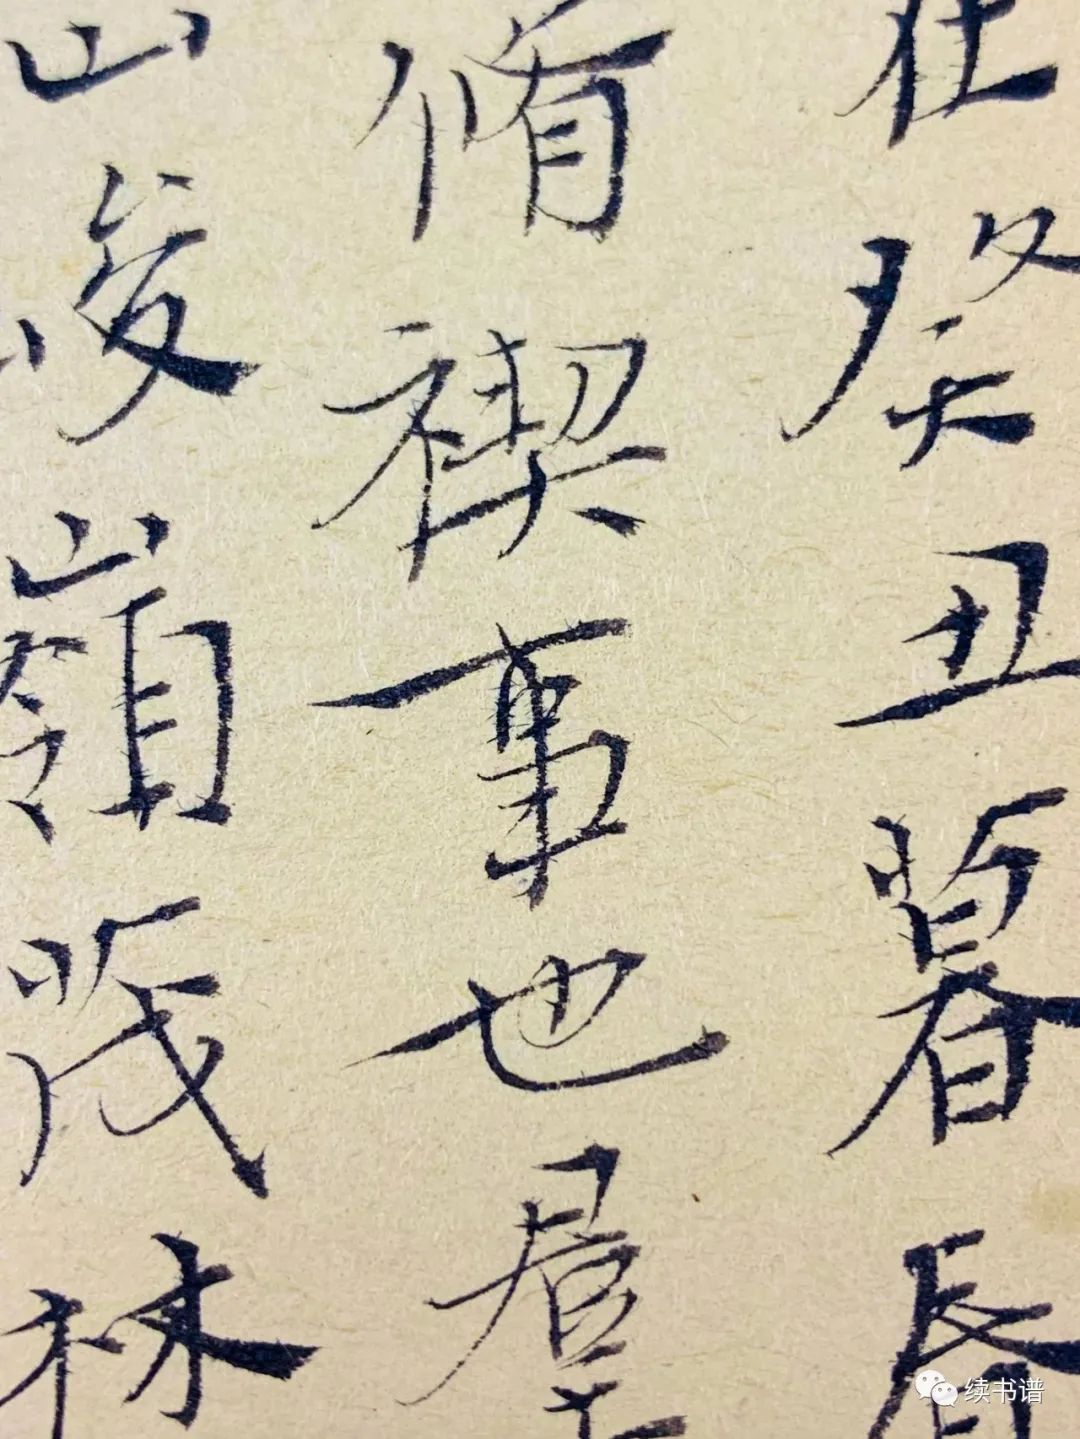 在癸丑暮春
脩禊事也羣
山峻嶺茂林
续书谱